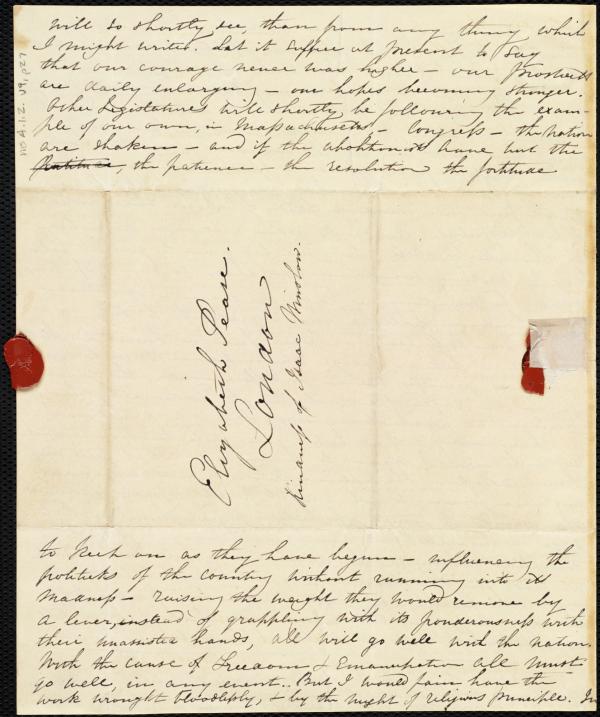 will so shortly see, than from any thing which
I might write. Let it suffice at present to say
that our courage never was higher – our prospects
are daily enlarging – our hopes becoming stronger.
Other Legislatures will shortly be following the exam-
ple of our own, in Massachusetts – Congress – the Nation
are shaken – and if the abolitionists have but the
, the patience – the resolution the fortitude
Elizabeth Pease.
London
Kindness of Isaac Winslow.
to keep on as they have begun – influencing the
politicks of the country without running into its
madness – raising the weight they would remove by
a lever, instead of grappling with its ponderousness with
their unassisted hands, all will go well with the nation.
With the cause of Freedom & Emancipation all must
go well, in any event.. But I would fain have the
work wrought bloodlessly, & by the might of religious principle. In
ms A.1.2. v9, p27